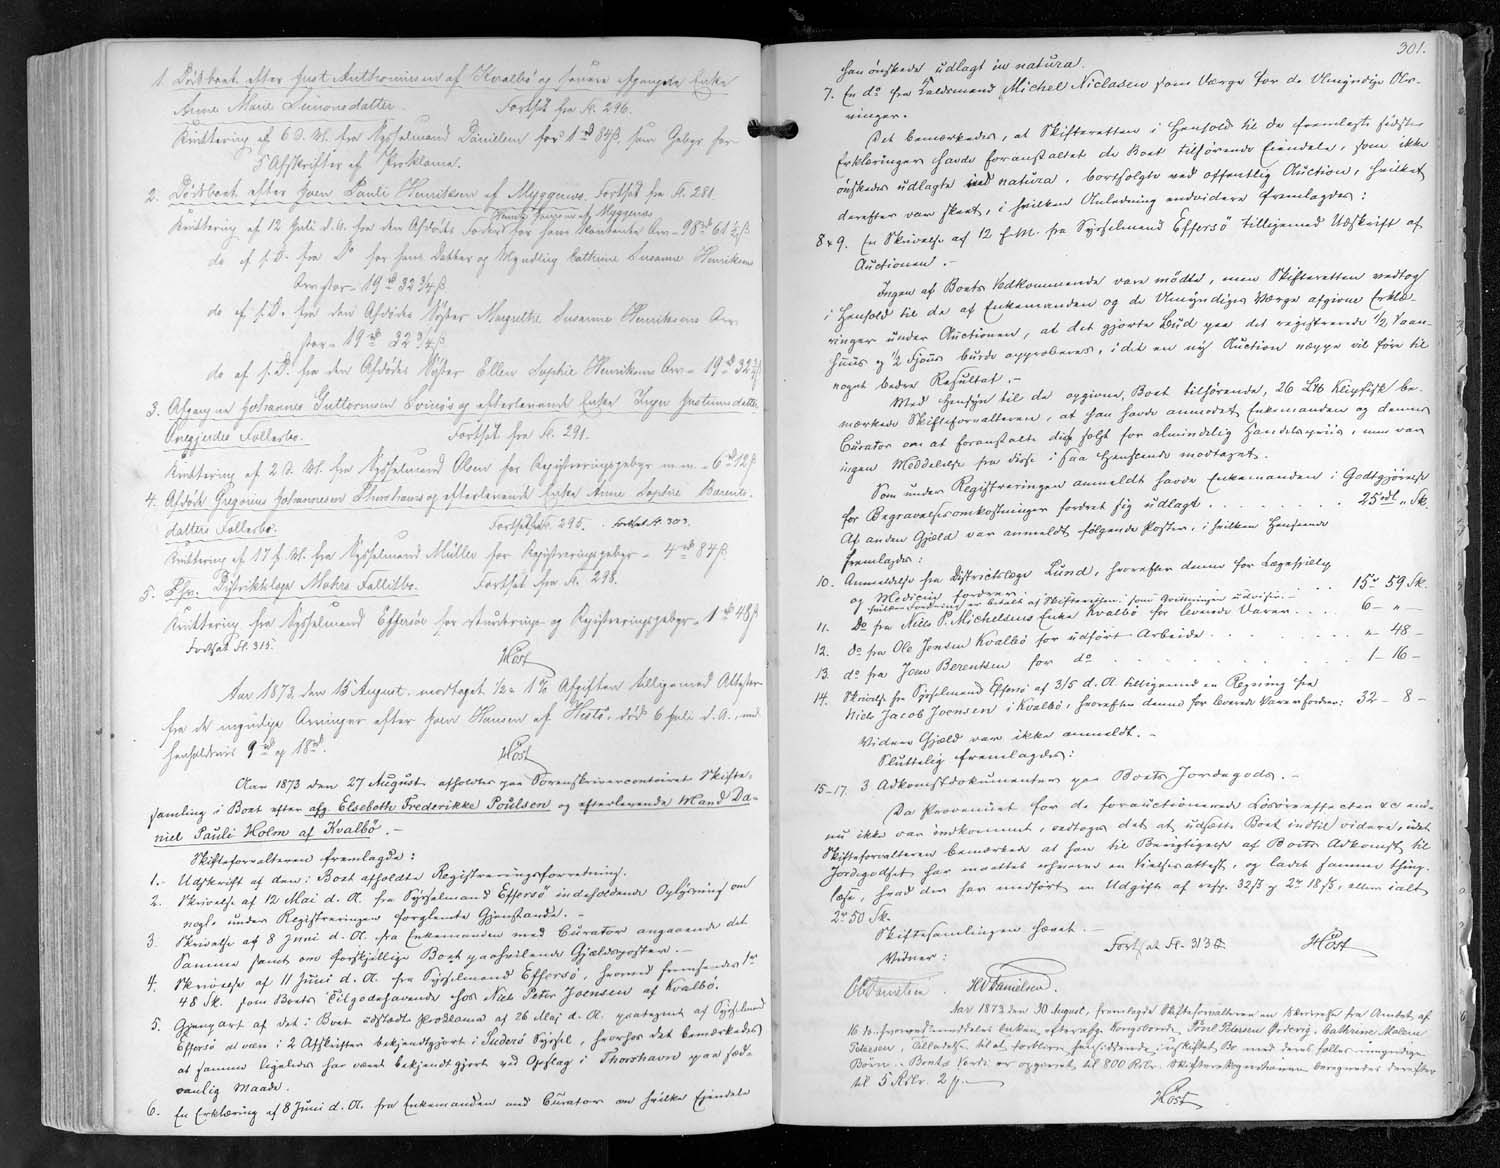 1. Dödsboet efter Just Guttormsen af Kvalbö og senere afgangne Enke
Anne Marie Simonsdatter. Fortsat fra Fl. 296.
Kvittering af 6 d. M. fra Sysselmand Danielsen for 1 rd 84 β, som Gebyr for
5 Afskrifter af Proklama.
2. Dödsboet efter Joen Pauli Henriksen af Myggenæs. Fortsat fra Fl. 281.
Kvittering af 12 Juli d. A. fra den Afdödes Fader for hans Arv - 98 rd 61 ½ β
do af s. D. fra Do for hans Datter og Myndling Cathrine Susanne Henriksen
Arv stor - 19 rd 32 ¾ β.
do af s. D. fra den Afdödes Söster Margrethe Susanne Henriksen Arv
stor - 19 rd 32 ¾ β.
do af s. D. fra den Afdödes Söster Ellen Sophie Henriksen Arv - 19 rd 32 ¾ β
3. Afgangne Johannes Guttormsen og efterlevende Enke Inger Justinusdatter
Fortsat fra Fl. 291.
Kvittering af 2 d. M. fra Sysselmand Olsen for Registreringsgebyr m. m. - 6 rd 12 β
4. Afdöde Gregorius Johannesen og efterlevende Enke Anne Sophie Barents-
datters Fællesbo. Fortsat fra Fl. 295. Fortsat Fl. 303.
Kvittering af 17 f. M. fra Sysselmand Müller for Registreringsgebyr - 4 rd 84 β.
5. Distriktslæge Mohrs Fallitbo. Fortsat fra Fl. 298.
Kvittering fra Sysselmand Effersöe for Vurderings- og Registreringsgebyr - 1 rd 48 β
Fortsat Fl. 315.
Höst
Aar 1873 den 15 August modtaget ½ & 1 % Afgiften tilligemed Attester
fra de myndige Arvinger efter Joen Hansen af Hestö, död 6 Juli d. A., med
henholdsvis 9 rd og 18 rd.
Höst
Aar 1873 den 27 August afholdtes paa Sorenskrivercontoiret Skifte-
samling i Boet efter afg. Elsebeth Frederikke Poulsen og efterlevende Mand Da-
niel Pauli Holm af Kvalbö. -
Skifteforvalteren fremlagde:
1. - Udskrift af den i Boet afholdte Registreringsforretning.
2. Skrivelse af 12 Mai d. A. fra Sysselmand Effersö indeholdende Oplysning om
nogle under Registreringen forglemte Gjenstande. -
3. Skrivelse af 8 Juni d. A. fra Enkemanden med Curator angaaende det
Samme samt om forskjellige Boet paahvilende Gjældsposter. -
4. Skrivelse af 11 Juni d. A. fra Sysselmand Effersö, hvorved fremsendes 1 r
48 Sk. som Boets Tilgodehavende hos Niels Peter Joensen af Kvalbö.
5. Gjenpart af det i Boet udstedte Proklama af 26 Maj d. A. paategnet af Sysselmand
Effersö at være i 2 Afskrifter bekjendtgjort i Suderö Syssel, hvorhos det bemærkedes
at samme ligeledes har været bekjendtgjort ved Opslag i Thorshavn paa sæd-
vanlig Maade.
6. En Erklæring af 8 Juni d. A. fra Enkemanden med Curator om hvilke Ejendele
301.
han önskede udlagt in natura.
7. En do fra Sandsmand Michel Niclasen som Værge for de Umyndige Ar-
vinger.
Det bemærkedes, at Skifteretten i Henhold til de fremlagte sidste
Erklæringer havde foranstaltet de Boet tilhörende Eiendele, som ikke
önskedes udlagte in natura, bortsolgte ved offentlig Auction, hvilket
derefter var skeet, i hvilken Anledning endvidere fremlagdes:
8 & 9. En Skrivelse af 12 f. M. fra Sysselmand Effersö tilligemed Udskrift af
Auctionen. -
Ingen af Boets Vedkommende vare mödte, men Skifteretten vedtog
i Henhold til de af Enkemanden og de Umyndiges Værge afgivne Erklæ-
ringer under Auctionen, at det gjorte Bud paa det registrerede ½ Vaan-
huus og ½ Hjaus burde approberes, idet en ny Auction næppe vil före til
noget bedre Resultat. -
Med Hensyn til de opgivne, Boet tilhörende, 26 L℔ Klipfisk be-
mærkede Skifteforvalteren, at han havde anmodet Enkemanden og dennes
Curator om at foranstalte disse solgt for almindelig Handelspriis, men var
ingen Meddelelse fra disse i saa Henseende modtaget.
Som under Registreringen anmeldt havde Enkemanden i Godtgjörelse
for Begravelsesomkostninger fordret sig udlagt . . . . . . 25 rdl „ Sk.
Af anden Gjæld var anmeldt fölgende Poster, i hvilken Henseende
fremlagdes:
10. Anmeldelse fra Districtslæge Lund, hvorefter denne for Lægehjælp
og Medicin fordrer: . . . . . 15 r 59 Sk.
hvilken Fordring er betalt af Skifteretten som Qvitteringen udviser. -
11. Do fra Niels P. Michelsens Enke Kvalbö for leverede Varer . . . 6 - „ -
12. do fra Ole Jensen Kvalbö for udfört Arbeide . . . . . . „ - 48 -
13. do fra Joen Berentsen for do . . . . . . 1 - 16 -
14. Skrivelse fra Sysselmand Effersö af 3/5 d. A. tilligemed en Regning fra
Niels Jacob Joensen i Kvalbö, hvorefter denne for leverede Varer fordrer: 32 - 8 -
Videre Gjæld var ikke anmeldt. -
Sluttelig fremlagdes:
15-17. 3 Adkomstdokumenter paa Boets Jordegods. -
Da Provenuet for de forauctionerede Lösöreeffecter &c end-
nu ikke var indkommet, vedtoges det at udsætte Boet indtil videre, idet
Skifteforvalteren bemærkede at han til Berigtigelse af Boets Adkomst til
Jordegodset har maattet erhverve en Vielsesattest, og ladet samme thing-
læse, hvad der har medfört en Udgift af resp. 32 β og 2 r 18 β, eller ialt
2 r 50 Sk.
Skiftesamlingen hævet. -
Fortsat Fl. 313. Höst
Vidner:
HDanielsen.
Aar 1873 den 30 August, fremlagde Skifteforvalteren en Skrivelse fra Amtet af
16 ds. hvorved meddeles Enken efter afg. Kongsbonde, Poul Petersen Örderig, Cathrine Malene
Petersen, Tilladelse til at forblive hensiddende i uskiftet Bo med deres fælles umyndige
Börn. - Boets Værdi er opgivet til 800 Rdlr. Skifteretsgebyrerne beregnedes derefter
til 5 Rdlr. 2 β. -
Höst